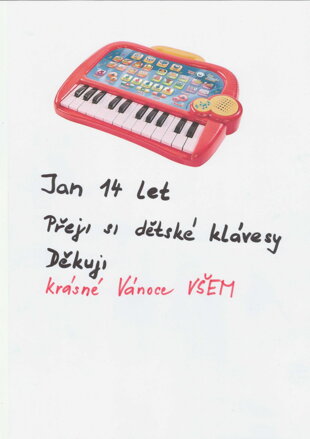 Jan 14 let
Přeji si dětské klávesy
Děkuji
krásné Vánoce VŠEM